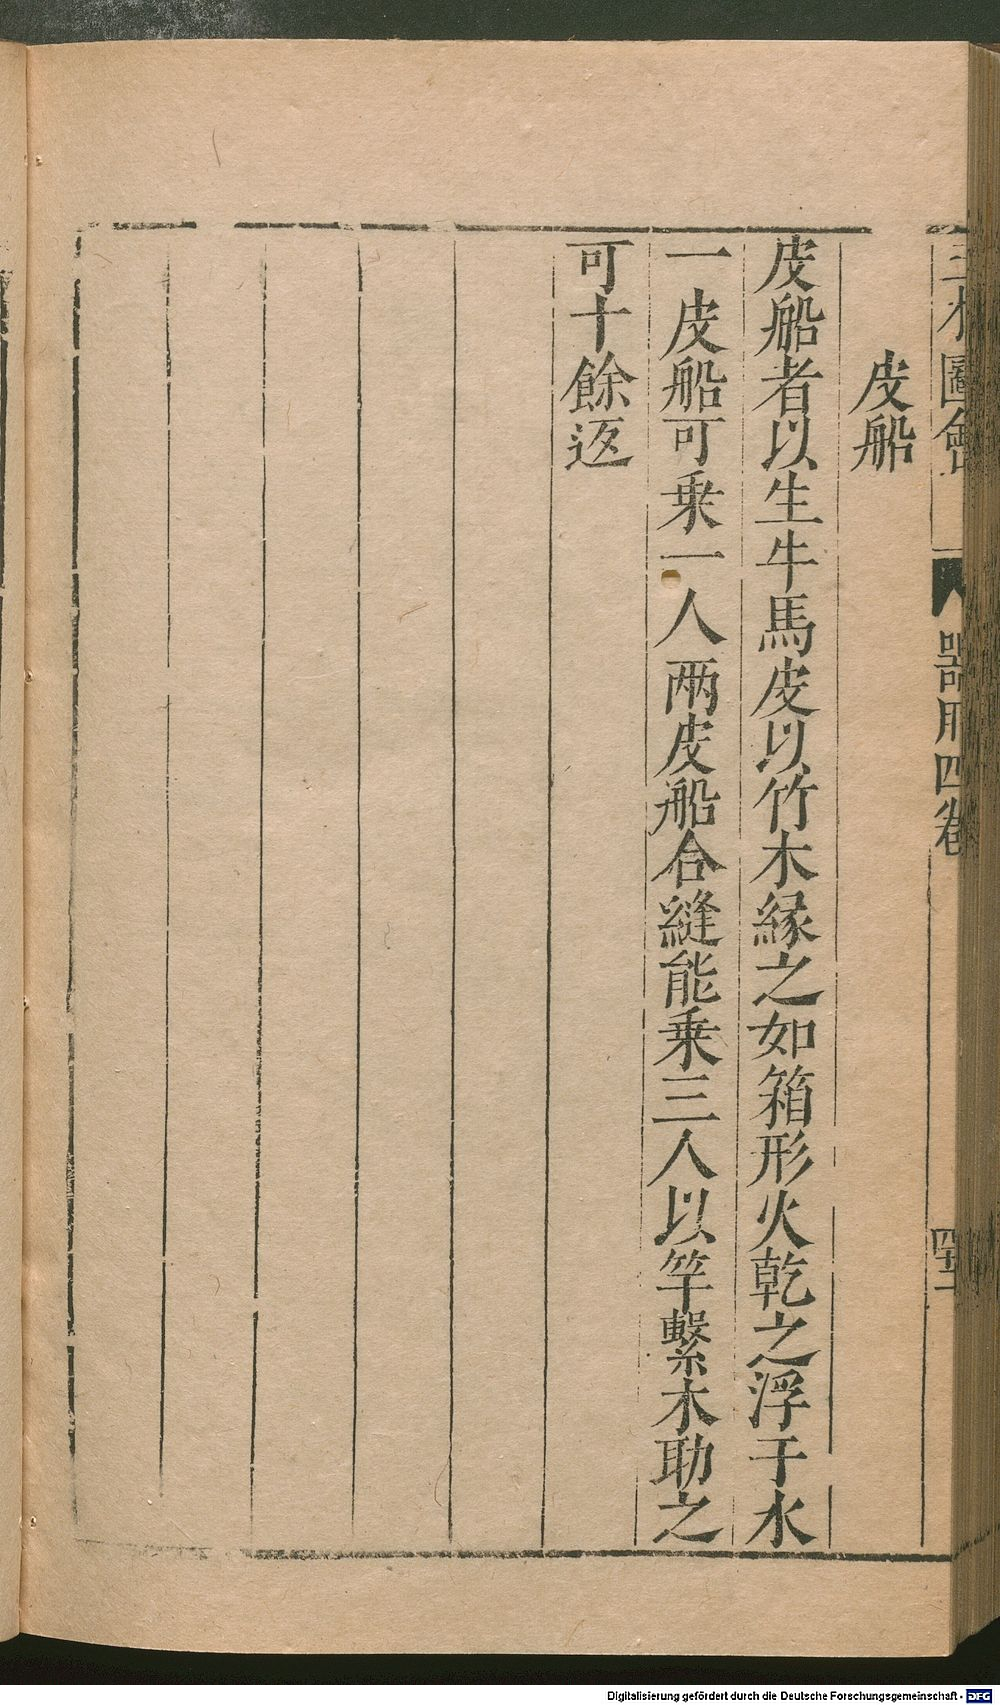 三才圖會
器用四卷
四十二
皮船
皮船者以生牛馬皮以竹木緣之如箱形火乾之浮于水
一皮船可乗一人兩皮船合縫能乗三人以竿繫木助之
可十餘返
Digitalisierung gefördert durch die Deutsche Forschungsgemeinschaft - DFG